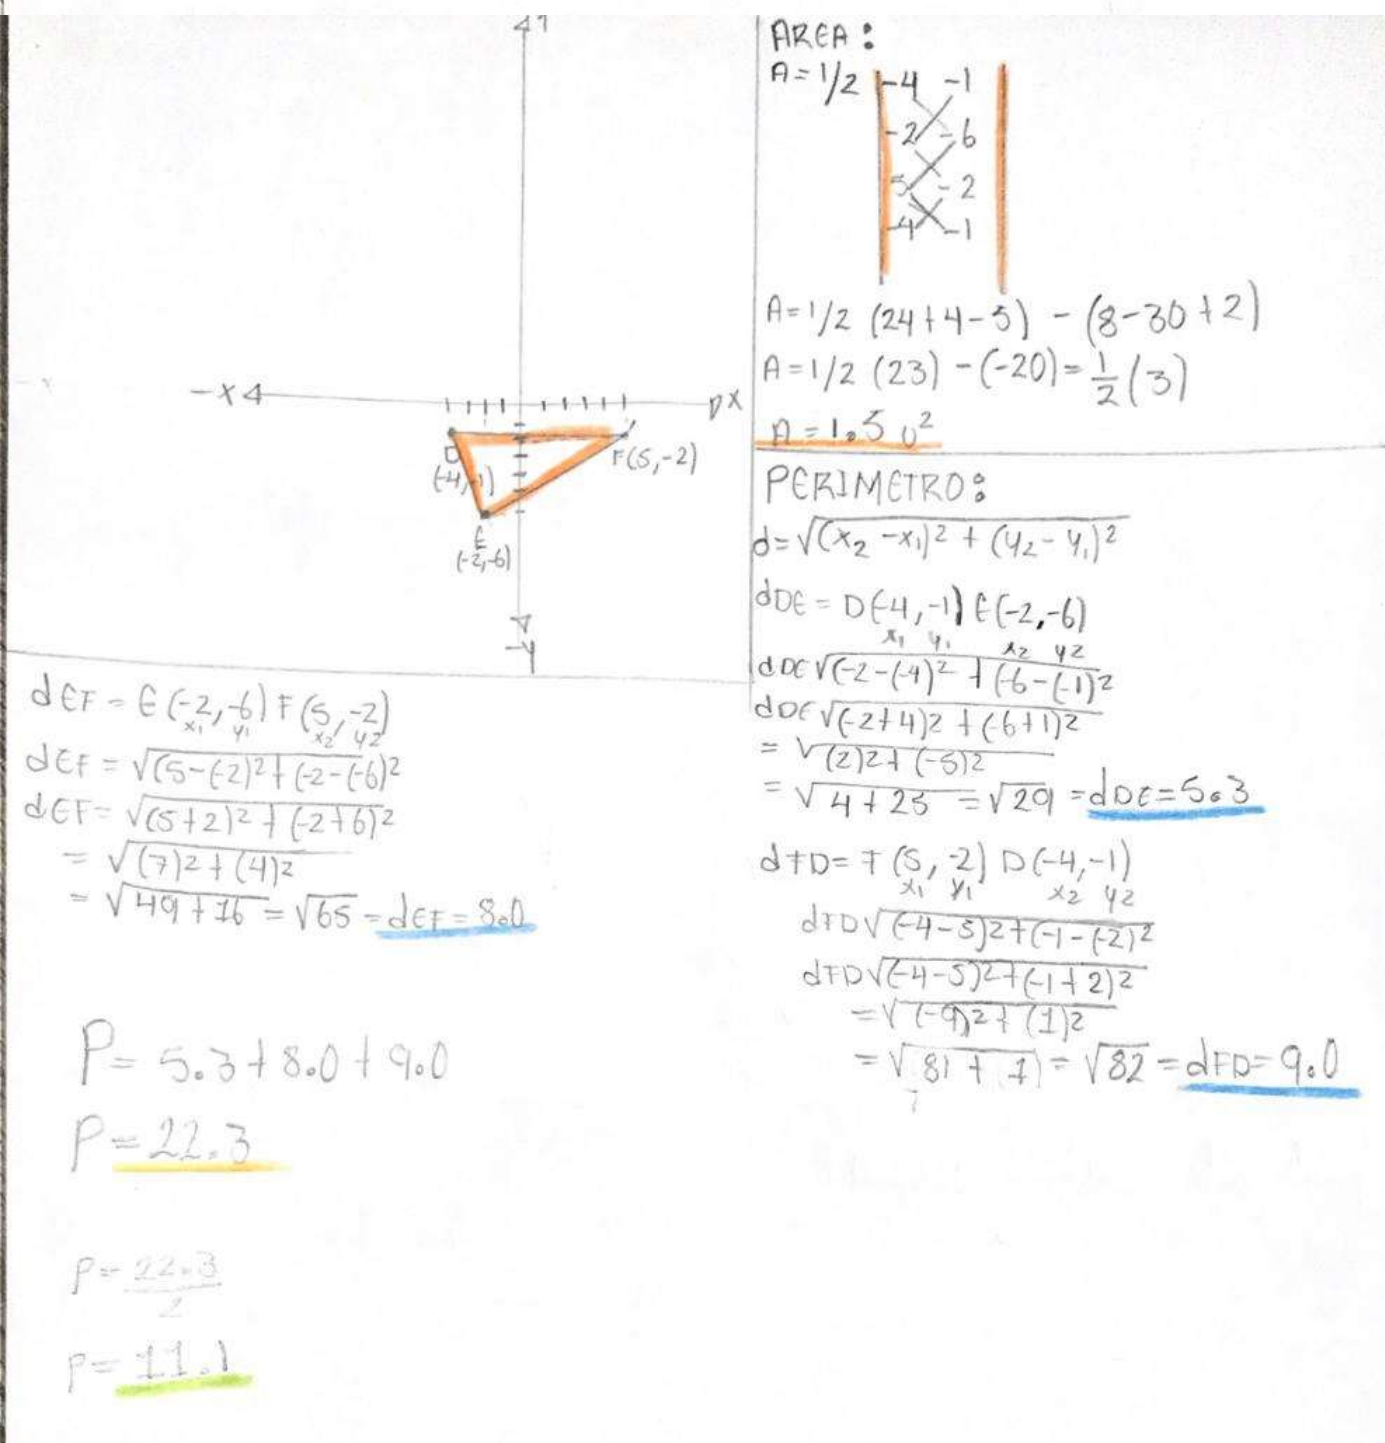 y
-x
x
D
(-4,-1)
F(5,-2)
E
(-2,-6)
-y
AREA:
A=1/2 |-4 -1|
-2 -6
5 -2
-4 -1
A=1/2 (24+4-5) - (8-30+2)
A=1/2 (23) -(-20)= 1/2 (3)
A=1.5 u²
PERIMETRO:
d=√(x₂-x₁)²+(y₂-y₁)²
dDE = D(-4,-1) E(-2,-6)
x₁ y₁ x₂ y₂
dDE√(-2-(-4)²+(-6-(-1)²
dDE√(-2+4)²+(-6+1)²
=√(2)²+(-5)²
=√4+25=√29=dDE=5.3
dFD=F(5,-2) D(-4,-1)
x₁ y₁ x₂ y₂
dFD√(-4-5)²+(-1-(-2)²
dFD√(-4-5)²+(-1+2)²
=√(-9)²+(1)²
=√81+1=√82=dFD=9.0
dEF=E(-2,-6) F(5,-2)
x₁ y₁ x₂ y₂
dEF=√(5-(-2)²+(-2-(-6)²
dEF=√(5+2)²+(-2+6)²
=√(7)²+(4)²
=√49+16=√65=dEF=8.0
P=5.3+8.0+9.0
P=22.3
P=22.3/2
P=11.1